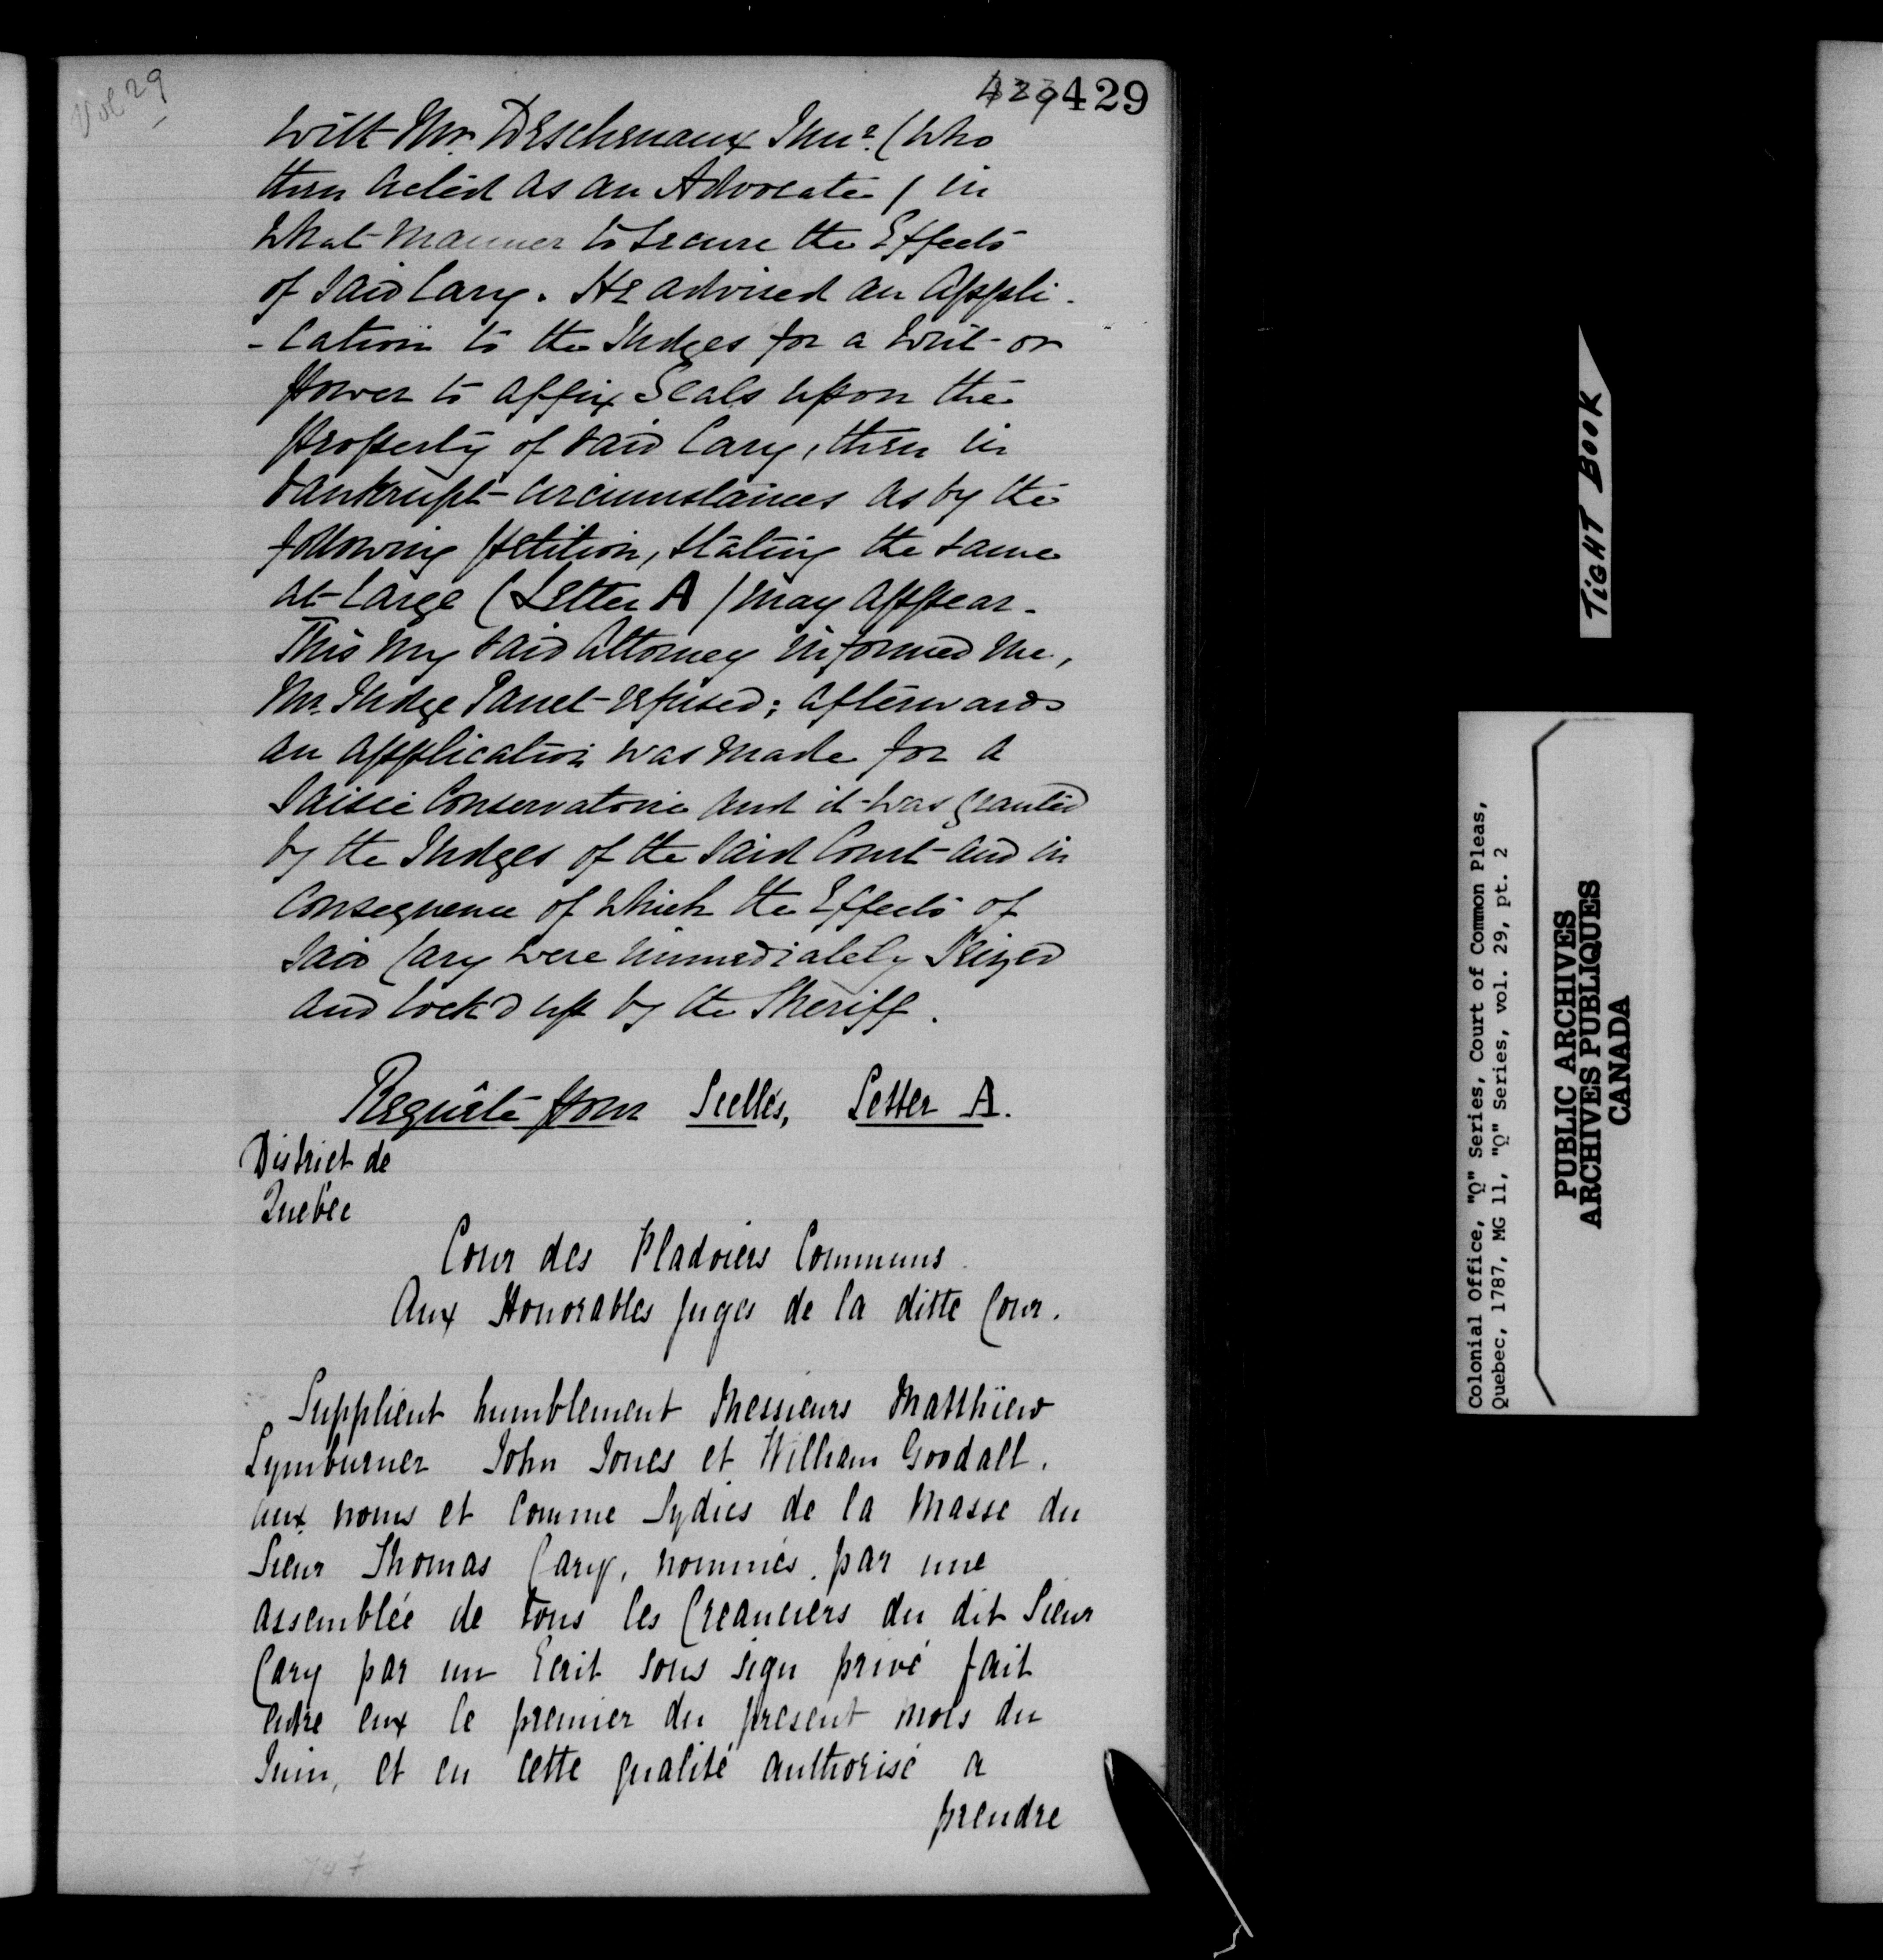 Vol 29
429 429
with Mr. Deschenaux Junr. (who
then acted as an Advocate) in
what manner to secure the Effects
of said Cary. He advised an Appli-
-cation to the Judges for a Writ or
Power to affix Seals upon the
property of said Cary, then in
bankrupt circumstances as by the
following petition, stating the same
at large (Letter A) may appear.
This my said Attorney informed me,
Mr. Judge Panet refused; afterwards
an application was made for a
Saisie Conservatoire and it was granted
by the Judges of the said Court and in
Consequence of which the Effects of
said Cary were immediately Seized
and lock'd up by the Sheriff.
Requête pour Scellés, Letter A.
District de
Quebec
Cour des Pladoiers Communs.
Aux Honorables Juges de la ditte Cour.
Supplient humblement Messieurs Matthiew
Lymburner John Jones et William Goodall.
aux noms et comme Sydics de la Masse du
Sieur Thomas Cary, nommés par une
assemblée de tous les Creanciers du dit Sieur
Cary par un Ecrit sous sign privé fait
entre eux le premier du présent mois du
Juin, et en cette qualité authorisé a
prendre
747
TIGHT BOOK
Colonial Office, "Q" Series, Court of Common Pleas,
Quebec, 1787, MG 11, "Q" Series, vol. 29, pt. 2
PUBLIC ARCHIVES
ARCHIVES PUBLIQUES
CANADA